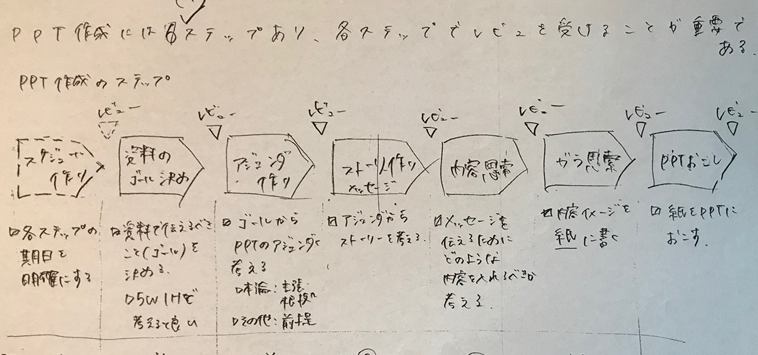 PPT作成には6ステップあり、各ステップでレビューを受けることが重要で
ある.
PPT作成のステップ
レビュー
レビュー
レビュー
レビュー
レビュー
レビュー
レビュー
スケジュール
作り
資料の
ゴール決め
アジェンダ
作り
ストーリー作り
メッセージ
内容思索
ガラ思索
PPTおこし
各ステップの
期日を
明確にする
資料で伝えるべき
こと(ゴール)を
決める.
5W1Hで
考えると良い
ゴールから
PPTのアジェンダを
考える
本論:主張
根拠
その他:前提
アジェンダから
ストーリーを考える.
メッセージを
伝えるために
どのような
内容を入れるべきか
考える.
内容イメージを
紙に書く
紙をPPTに
おこす.